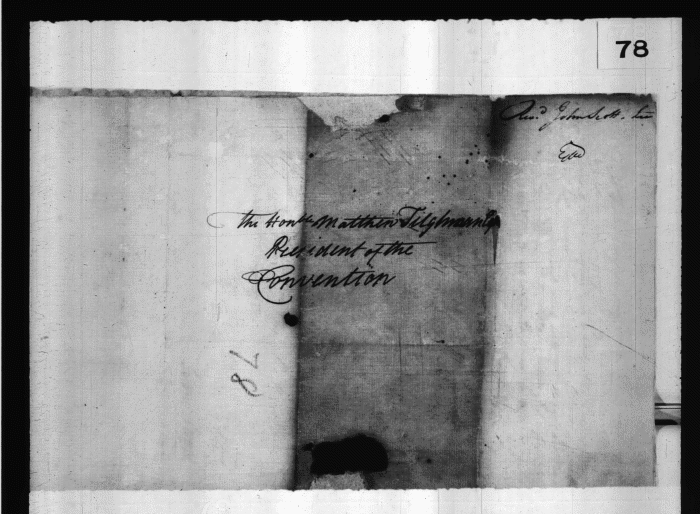 78
Rev.d John Scott
the Hon.ble Matthew Tilghman
President of the
Convention
78